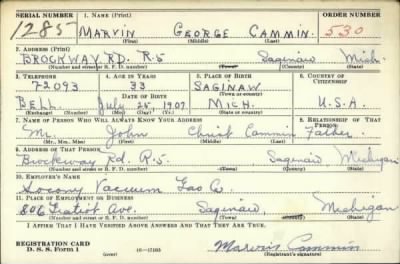 SERIAL NUMBER 1. NAME (Print) ORDER NUMBER
1285 MARVIN GEORGE CAMMIN. 530
(First) (Middle) (Last)
2. ADDRESS (Print)
BROCKWAY RD. R.5 Saginaw Mich.
(Number and street or R. F. D. number) (Town) (County) (State)
3. TELEPHONE 4. AGE IN YEARS 5. PLACE OF BIRTH 6. COUNTRY OF CITIZENSHIP
72093 33 SAGINAW
DATE OF BIRTH (Town or county)
BELL. July 25, 1907 MICH. U.S.A.
(Exchange) (Number) (Mo.) (Day) (Yr.) (State or country)
7. NAME OF PERSON WHO WILL ALWAYS KNOW YOUR ADDRESS 8. RELATIONSHIP OF THAT PERSON
Mr. John Christ Cammin Father
(Mr., Mrs., Miss) (First) (Middle) (Last)
9. ADDRESS OF THAT PERSON
Brockway Rd. R.5. Saginaw Michigan
(Number and street or R. F. D. number) (Town) (County) (State)
10. EMPLOYER'S NAME
Socony Vacuum Co.
11. PLACE OF EMPLOYMENT OR BUSINESS
806 Gratiot Ave. Saginaw, Michigan
(Number and street or R. F. D. number) (Town) (County) (State)
I AFFIRM THAT I HAVE VERIFIED ABOVE ANSWERS AND THAT THEY ARE TRUE.
REGISTRATION CARD
D. S. S. Form 1 (over) 16—17105 Marvin Cammin
(Registrant's signature)